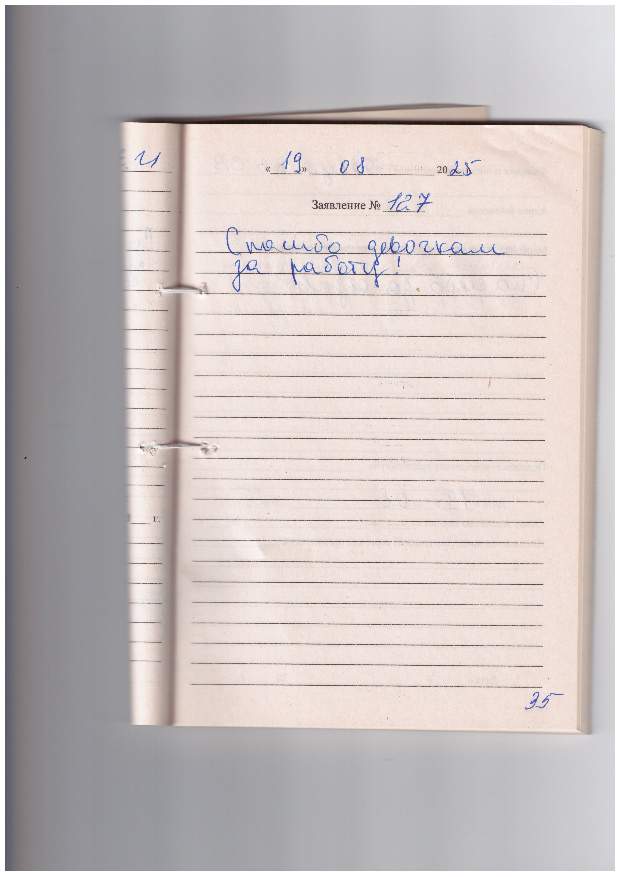 «19» 08 2025
Заявление № 127
Спасибо девочкам
за работу!
г.
35